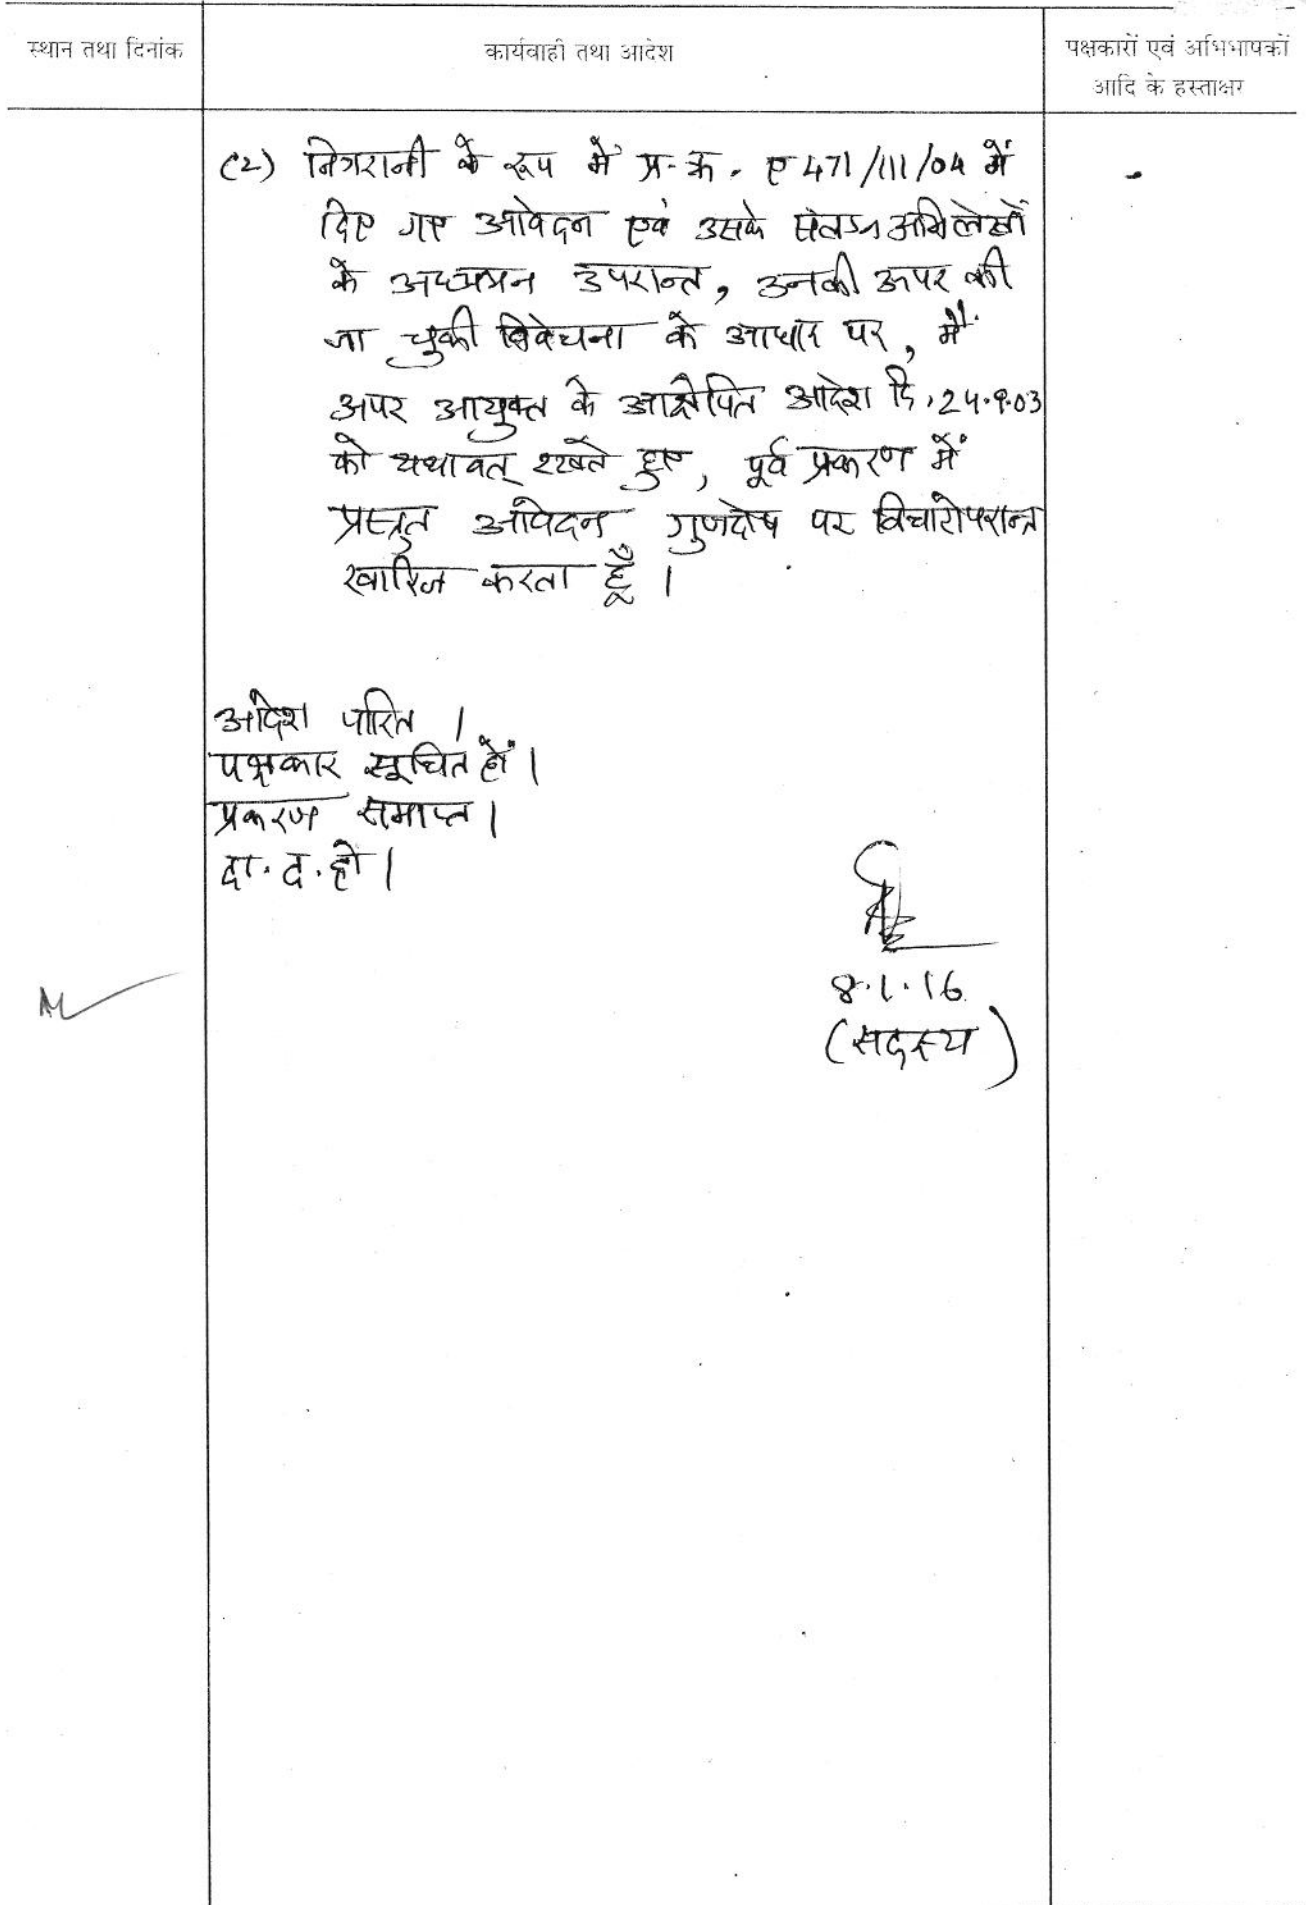 स्थान तथा दिनांक
कार्यवाही तथा आदेश
पक्षकारों एवं अभिभाषकों
आदि के हस्ताक्षर
(2) निगरानी के रूप में प्र-क्र. ए 471/III/04 में
दिए गए आवेदन एवं उसके संलग्न अभिलेखों
के अध्ययन उपरान्त, उनकी ऊपर की
जा चुकी विवेचना के आधार पर, मैं
अपर आयुक्त के आक्षेपित आदेश दि. 24.9.03
को यथावत् रखते हुए, पूर्व प्रकरण में
प्रस्तुत आवेदन गुणदोष पर विचारोपरान्त
खारिज करता हूँ ।
आदेश पारित ।
पक्षकार सूचित हों ।
प्रकरण समाप्त ।
दा. द. हो ।
8.1.16
(सदस्य)